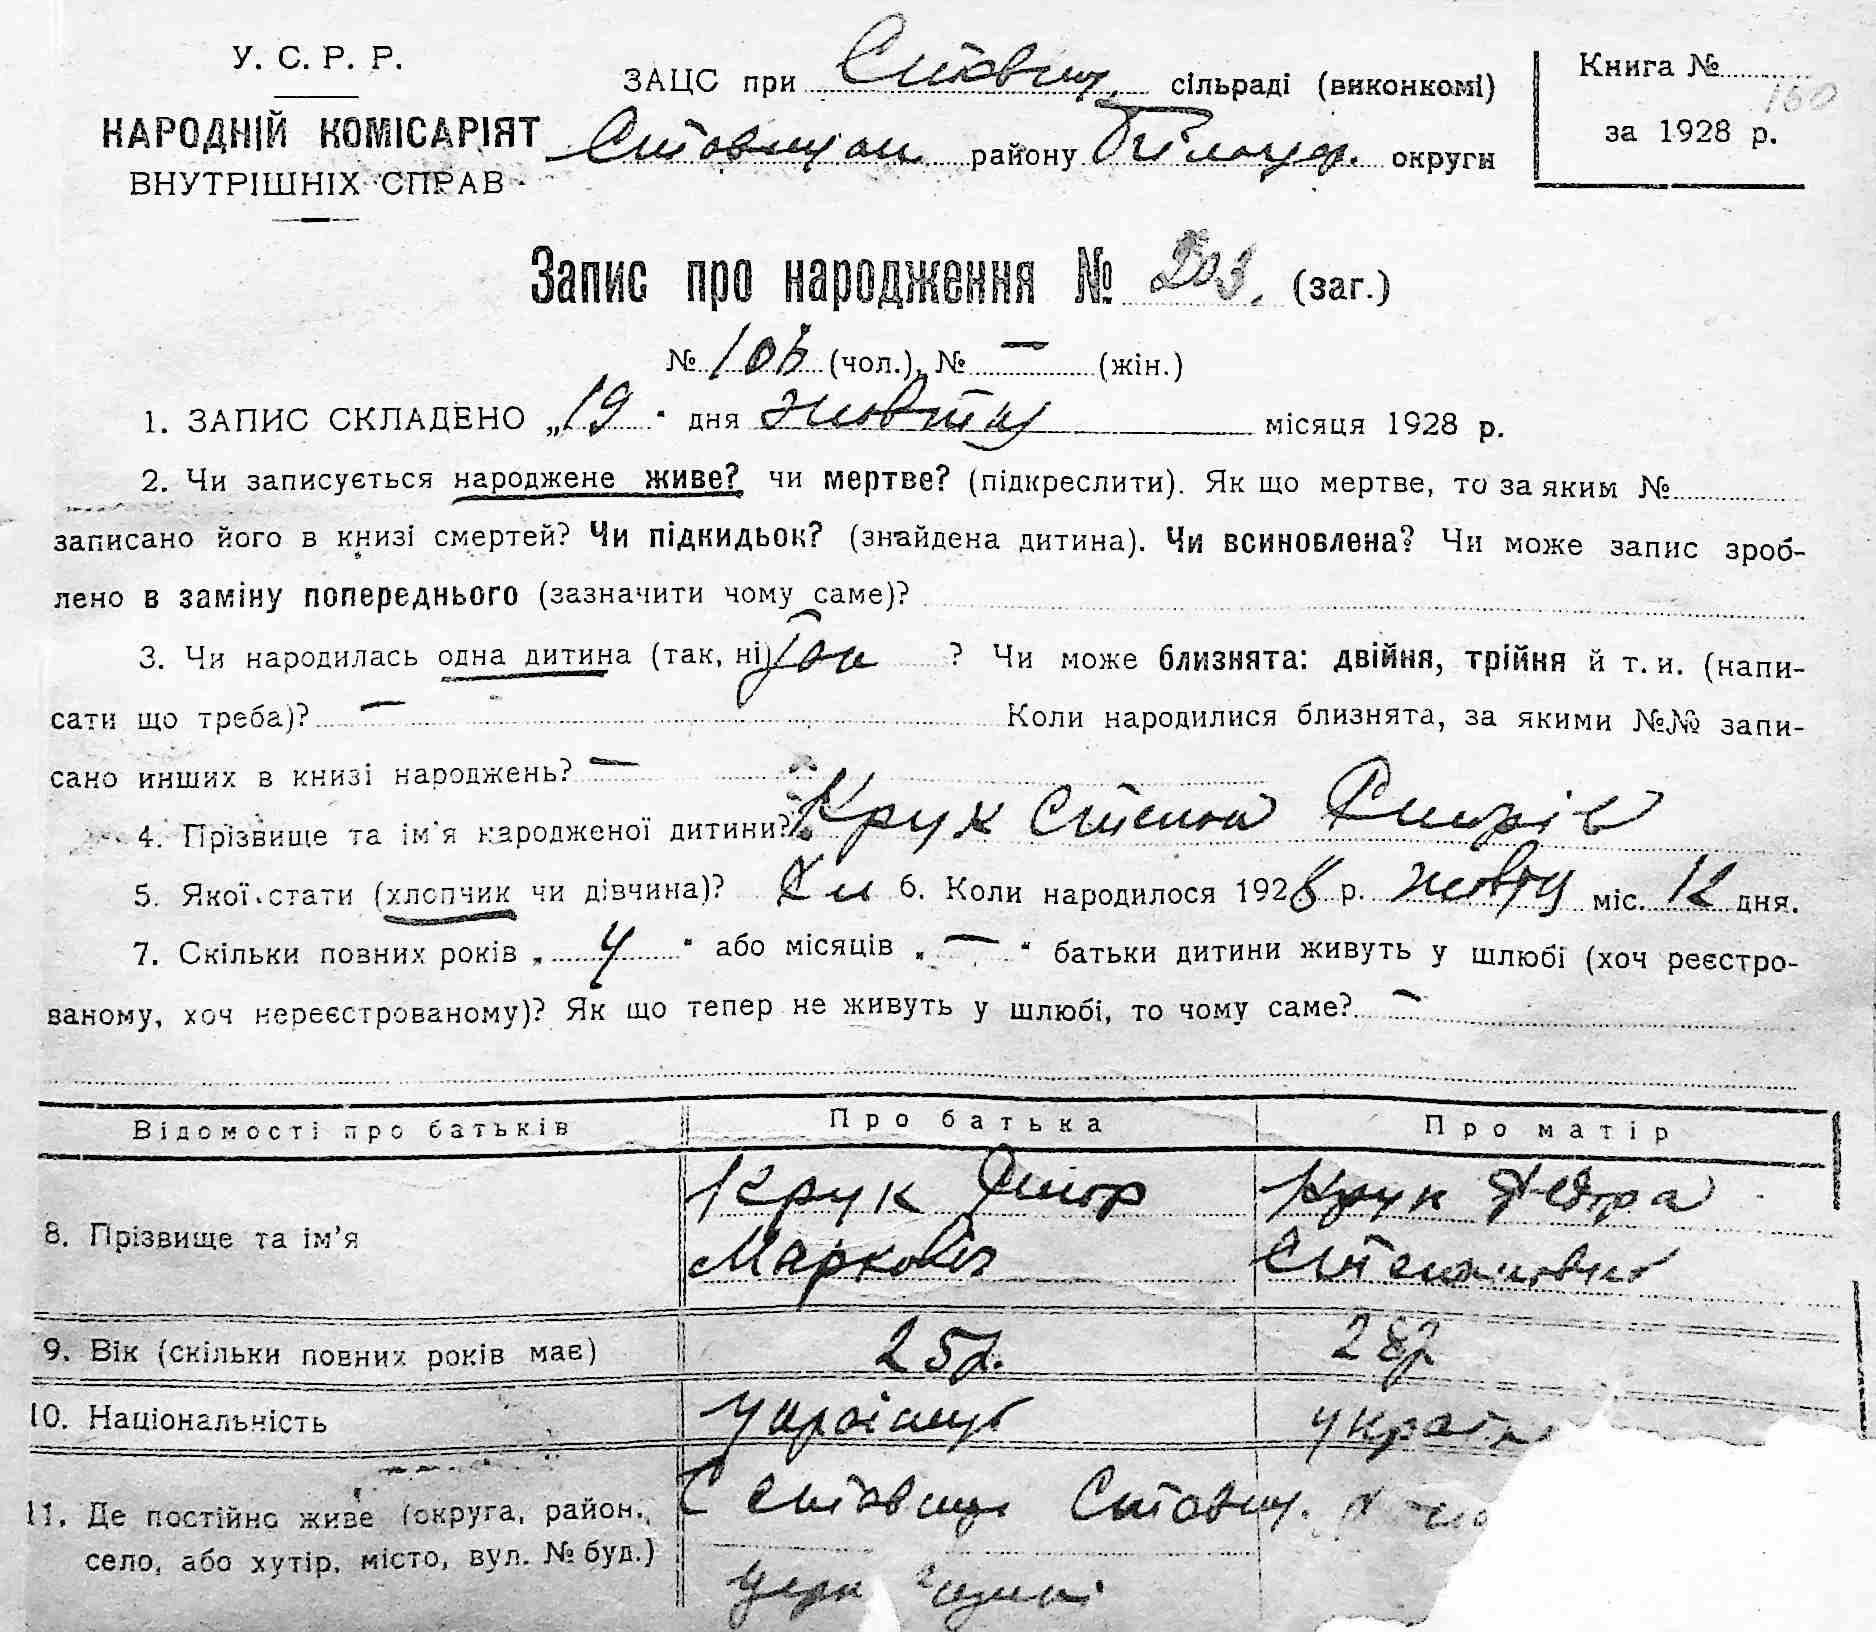 У. С. Р. Р.
НАРОДНІЙ КОМІСАРІЯТ
ВНУТРІШНІХ СПРАВ
ЗАЦС при Ставищ. сільраді (виконкомі)
Ставищан району Білоцер. округи
Книга № 160
за 1928 р.
Запис про народження № 203. (заг.)
№ 103 (чол.), № — (жін.)
1. ЗАПИС СКЛАДЕНО „19" дня жовтня місяця 1928 р.
2. Чи записується народжене живе? чи мертве? (підкреслити). Як що мертве, то за яким №
записано його в книзі смертей? Чи підкидьок? (знайдена дитина). Чи всиновлена? Чи може запис зроб-
лено в заміну попереднього (зазначити чому саме)?
3. Чи народилась одна дитина (так, ні) так ? Чи може близнята: двійня, трійня й т. и. (напи-
сати що треба)? — Коли народилися близнята, за якими №№ запи-
сано инших в книзі народжень? —
4. Прізвище та ім'я народженої дитини? Крук Степан
5. Якої стати (хлопчик чи дівчина)? Хл 6. Коли народилося 1928 р. жовтн міс. 12 дня.
7. Скільки повних років „ 4 " або місяців „ — " батьки дитини живуть у шлюбі (хоч реєстро-
ваному, хоч нереєстрованому)? Як що тепер не живуть у шлюбі, то чому саме? —
Відомості про батьків Про батька Про матір
8. Прізвище та ім'я Крук Крук
Маркович Степановна
9. Вік (скільки повних років має) 25 р. 28 р
10. Національність українець україн
11. Де постійно живе (округа, район, С Ставище Ставищ.
село, або хутір, місто, вул. № буд.)